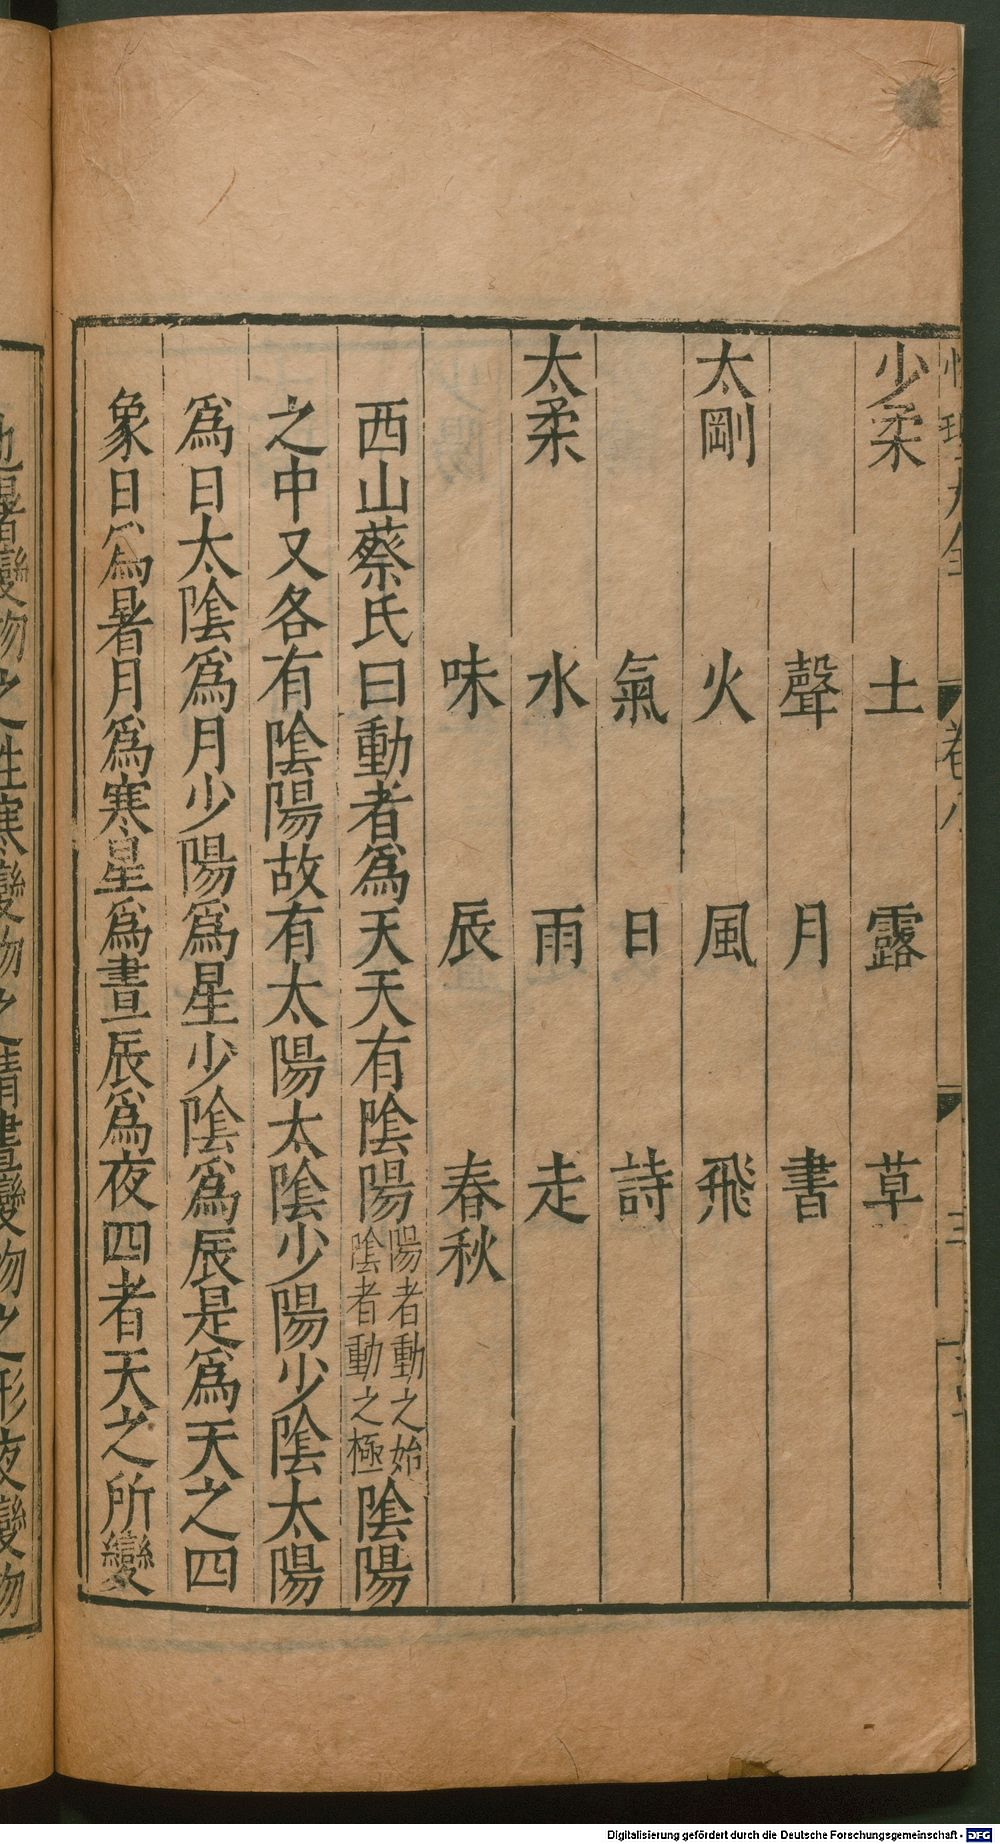 少柔 土 露 草
聲 月 書
太剛 火 風 飛
氣 日 詩
太柔 水 雨 走
味 辰 春秋
西山蔡氏曰動者爲天天有陰陽陽者動之始陰者動之極陰陽
之中又各有陰陽故有太陽太陰少陽少陰太陽
爲日太陰爲月少陽爲星少陰爲辰是爲天之四
象日爲暑月爲寒星爲晝辰爲夜四者天之所變
也暑變物之性寒變物之情晝變物之形夜變物
Digitalisierung gefördert durch die Deutsche Forschungsgemeinschaft - DFG